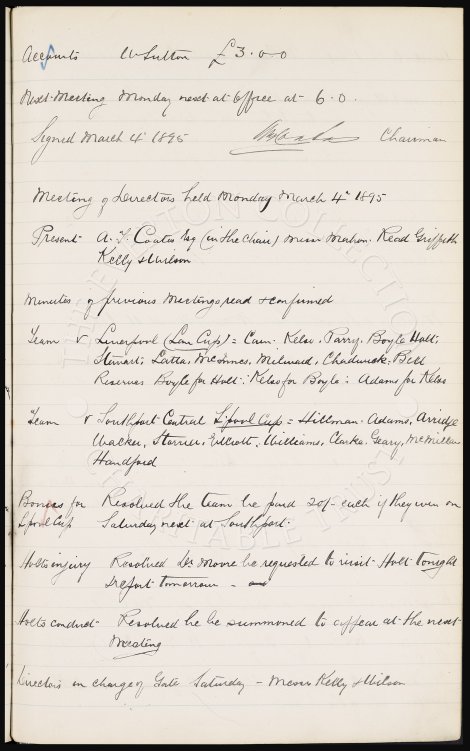 Accounts W Sutton £3.0.0
Next Meeting Monday next at Office at 6.0.
Signed March 4 1895 Chairman
Meeting of Directors held Monday March 4th 1895
Present A. T. Coates Esq (in the chair) Messrs Mahon. Read Griffiths
Kelly & Wilson
Minutes of previous Meetings read & confirmed
Team v Liverpool (Lan Cup) = Cain. Kelso. Parry. Boyle Holt.
Stewart. Latta. McInnes. Milward. Chadwick. Bell
Reserves Boyle for Holt: Kelso for Boyle: Adams for Kelso
Team v Southport Central Lpool Cup = Hillman. Adams, Arridge
Walker, Storrier, Elliott, Williams, Clarke. Geary, McMillan
Handford
Bonus for Resolved the team be paid 20/- each if they win on
Lpool Cup Saturday next at Southport.
Holts injury Resolved Dr Moore be requested to visit Holt tonight
& report tomorrow -
Holts conduct Resolved he be summoned to appear at the next
Meeting
Directors in charge of Gate Saturday - Messrs Kelly & Wilson
THE EVERTON COLLECTION
CHARITABLE TRUST